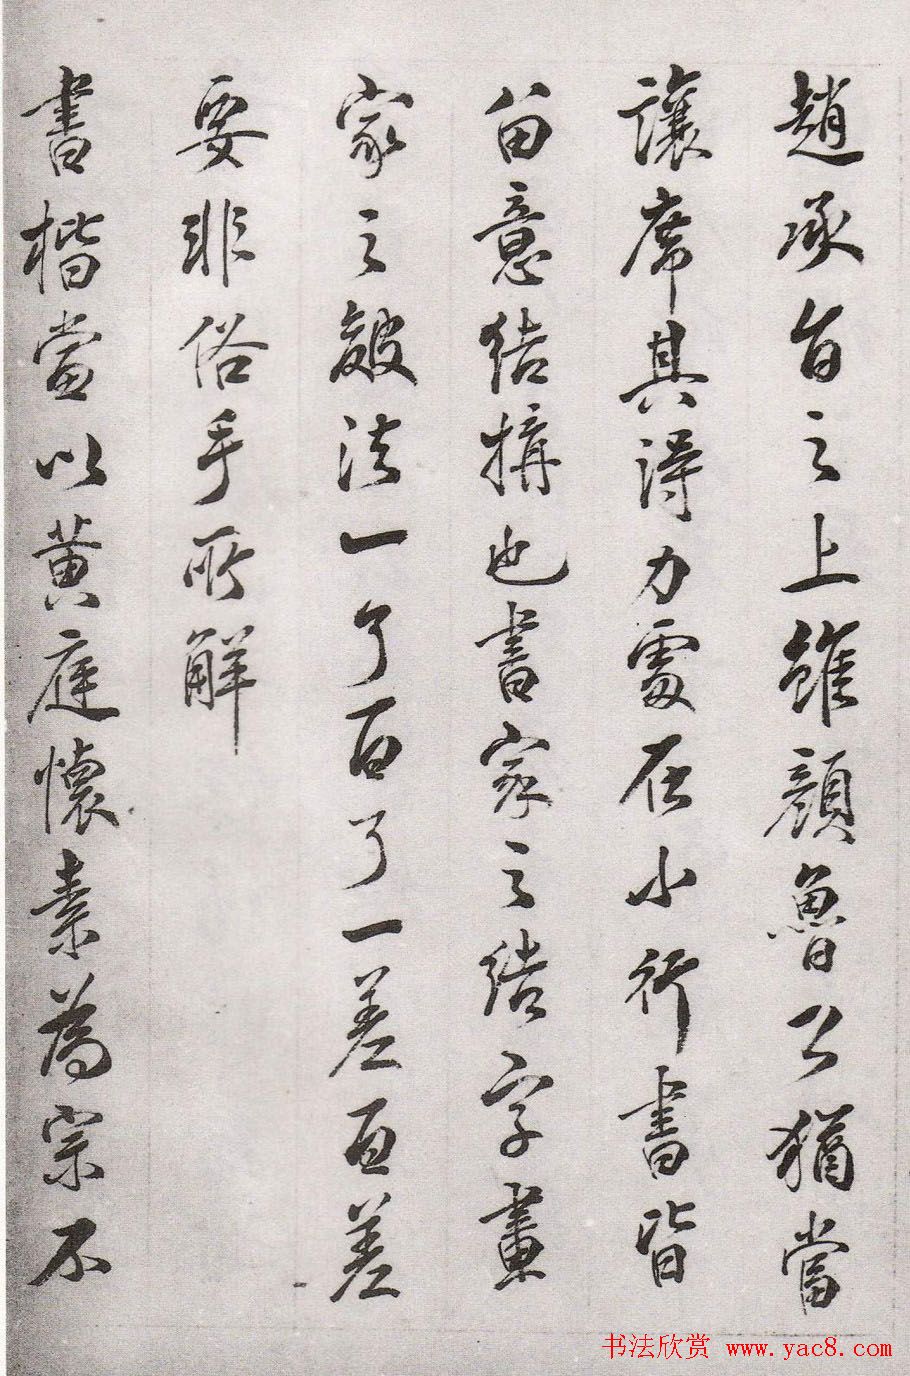 趙承旨之上雖顔魯公猶當
讓席其得力處在小行書皆
留意結搆也書家之結字畫
家之皴法一了百了一差百差
要非俗手所解
書楷當以黄庭懷素為宗不
书法欣赏 www.yac8.com